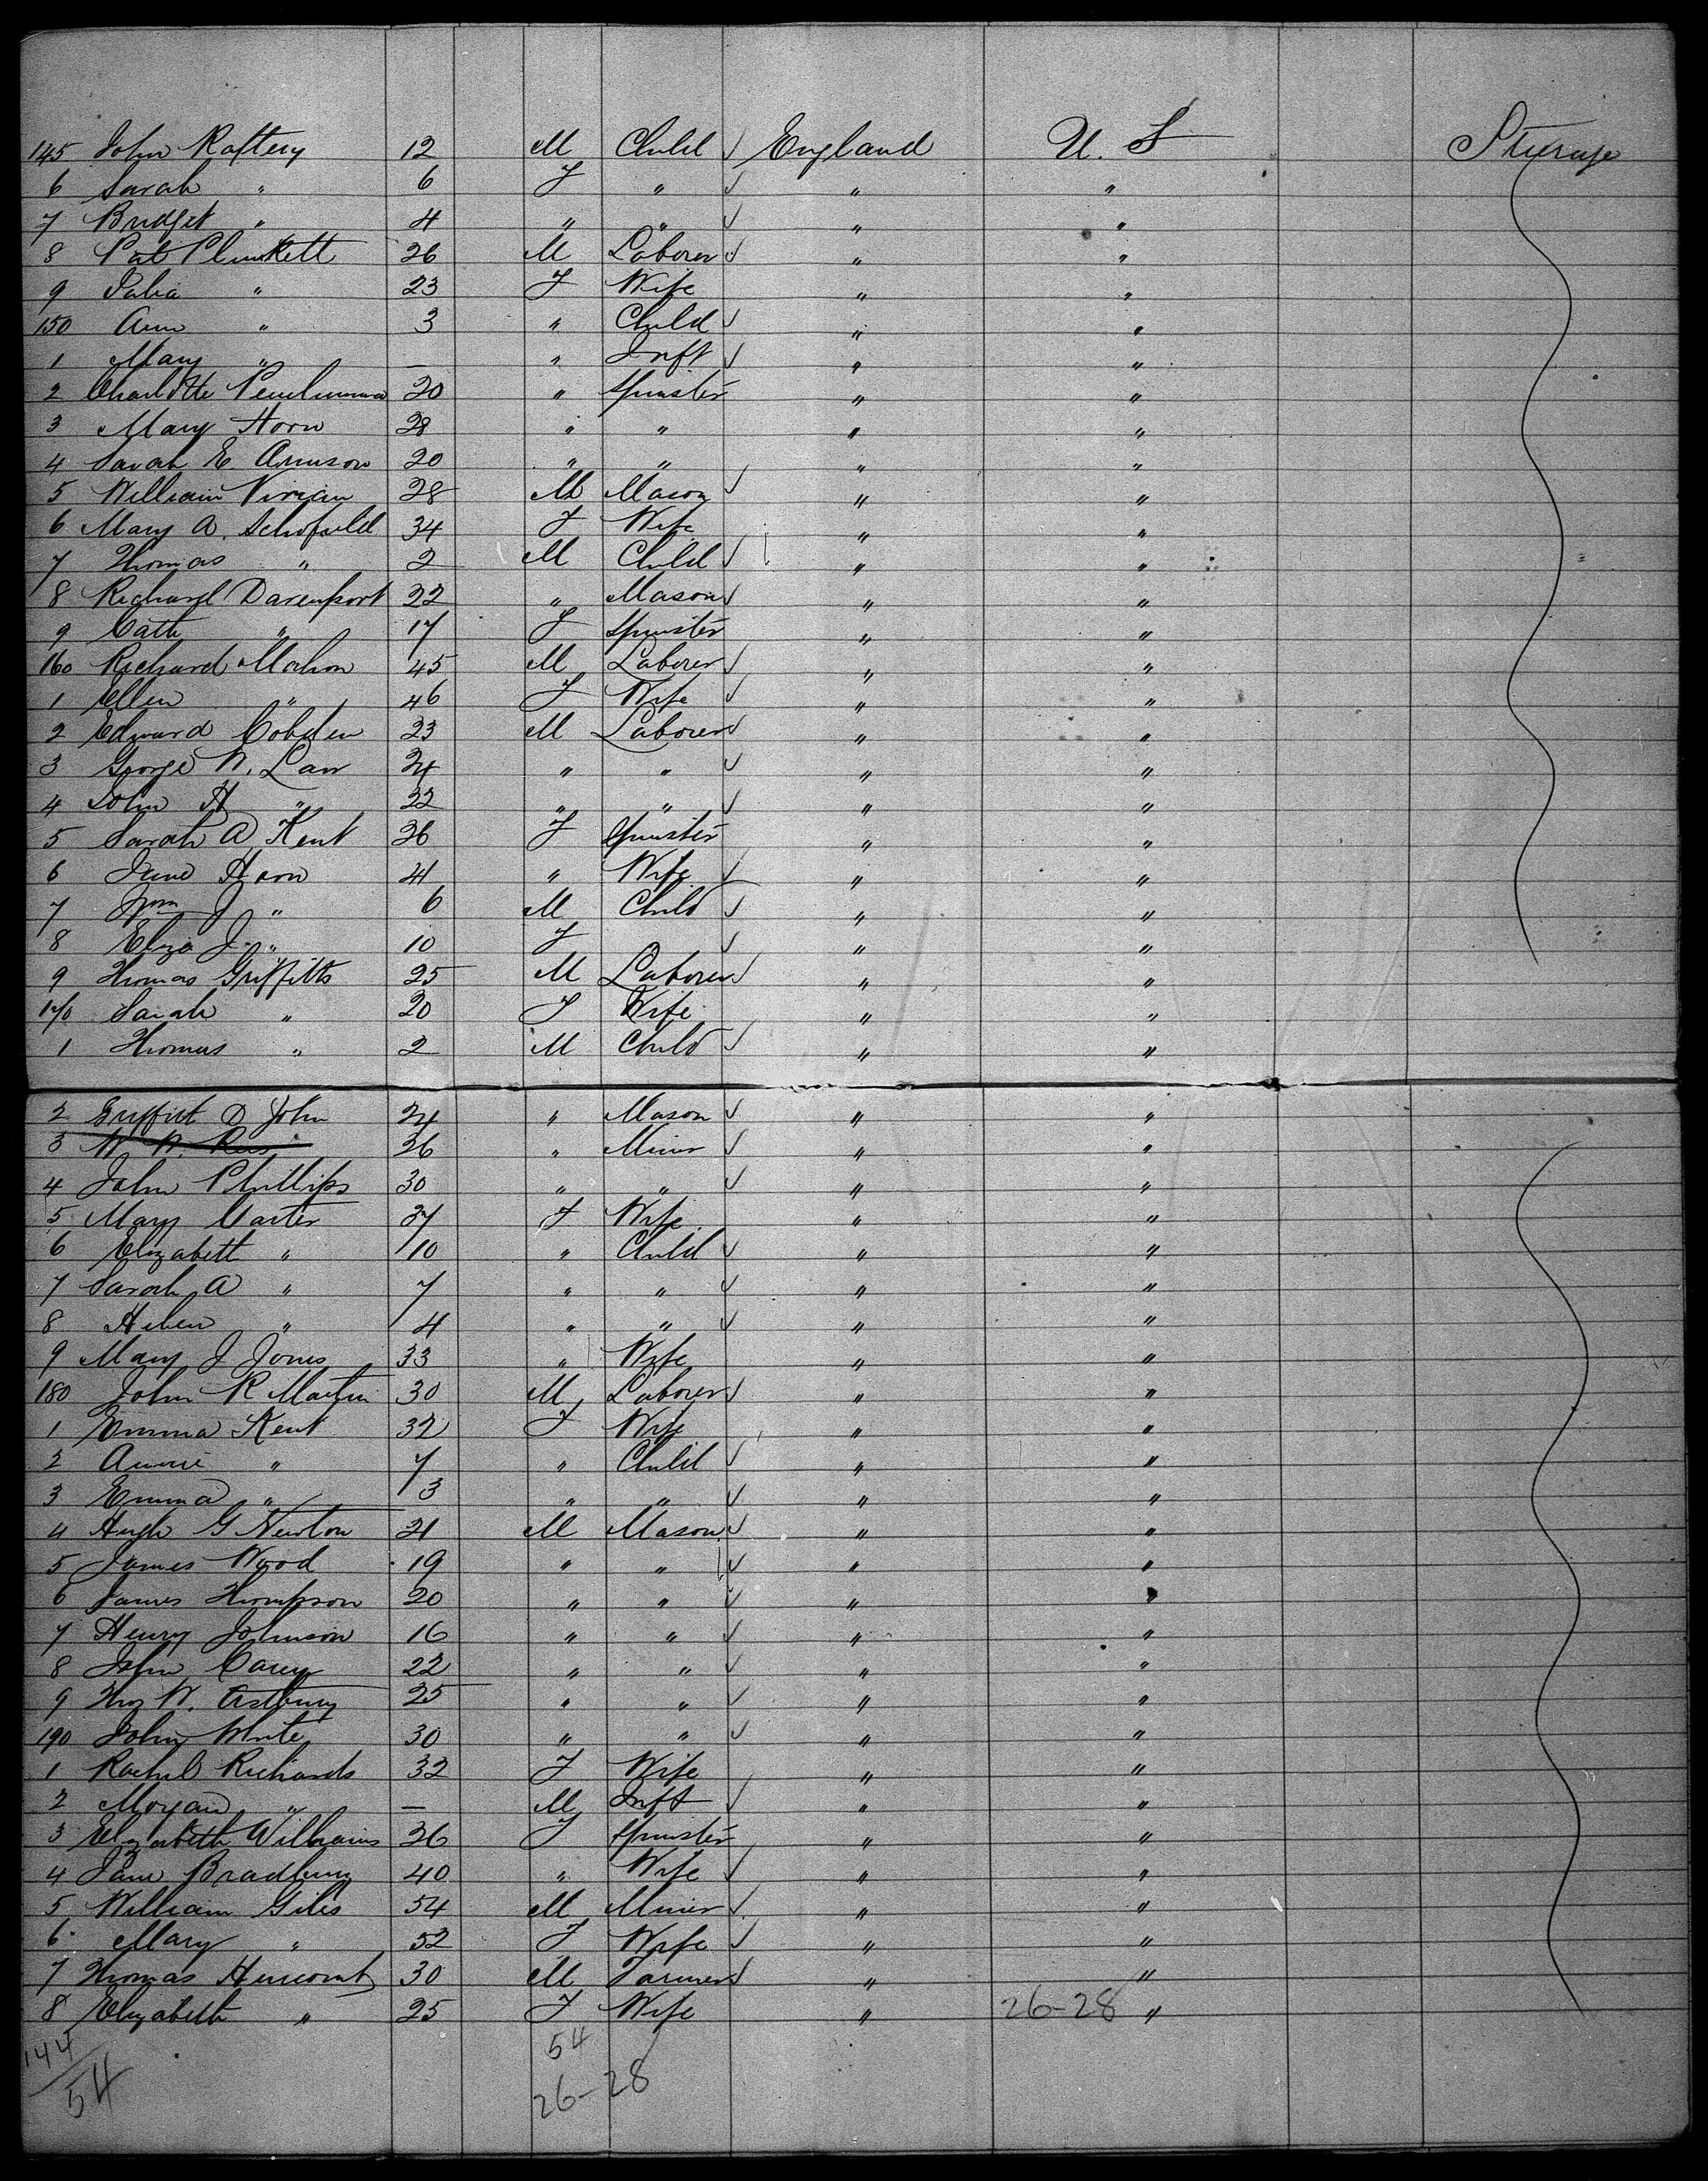 145 John Raftery 12 M Child ✓ England U. S Steerage
6 Sarah " 6 F " ✓ " "
7 Bridget " 4 " " ✓ " "
8 Pat Plunkett 26 M Laborer ✓ " "
9 Julia " 23 F Wife " "
150 Ann " 3 " Child ✓ " "
1 Mary " — " Inft ✓ " "
2 Charlotte 20 " Spinster " "
3 Mary Horn 28 " " " "
4 Sarah E. 20 " " " "
5 William Vivian 28 M Mason ✓ " "
6 Mary A. Schofield 34 F Wife " "
7 Thomas " 2 M Child ✓ " "
8 Richard Davenport 22 " Mason ✓ " "
9 Cath " 17 F Spinster " "
160 Richard Mahon 45 M Laborer ✓ " "
1 Ellen " 46 F Wife ✓ " "
2 Edward Cobden 23 M Laborer ✓ " "
3 George W. Law 24 " " ✓ " "
4 John H " 22 " " ✓ " "
5 Sarah A Kent 26 F Spinster " "
6 Jane Horn 41 " Wife ✓ " "
7 Wm J " 6 M Child ✓ " "
8 Eliza J " 10 F ✓ " "
9 Thomas Griffiths 25 M Laborer ✓ " "
170 Sarah " 20 F Wife " "
1 Thomas " 2 M Child ✓ " "
2 Griffith D John 24 " Mason ✓ " "
3 W. W. Rees 36 " Miner ✓ " "
4 John Phillips 30 " " ✓ " "
5 Mary Carter 37 F Wife " "
6 Elizabeth " 10 " Child ✓ " "
7 Sarah A " 7 " " ✓ " "
8 Helen " 4 " " ✓ " "
9 Mary J Jones 33 " Wife " "
180 John R Martin 30 M Laborer ✓ " "
1 Emma Kent 32 F Wife " "
2 Annie " 7 " Child ✓ " "
3 Emma " 3 " " ✓ " "
4 Hugh G Newton 21 M Mason ✓ " "
5 James Wood 19 " " ✓ " "
6 James Thompson 20 " " ✓ " "
7 Henry Johnson 16 " " ✓ " "
8 John Carey 22 " " ✓ " "
9 Thos W. Astbury 25 " " ✓ " "
190 John White 30 " " ✓ " "
1 Rachel Richards 32 F Wife " "
2 Morgan " — M Inft ✓ " "
3 Elizabeth Williams 26 F Spinster " "
4 Jane Bradbury 40 " Wife ✓ " "
5 William Giles 54 M Miner ✓ " "
6 Mary " 52 F Wife ✓ " "
7 Thomas 30 M Farmer ✓ " "
8 Elizabeth " 25 F Wife " 26-28 "
144 54
54 26-28